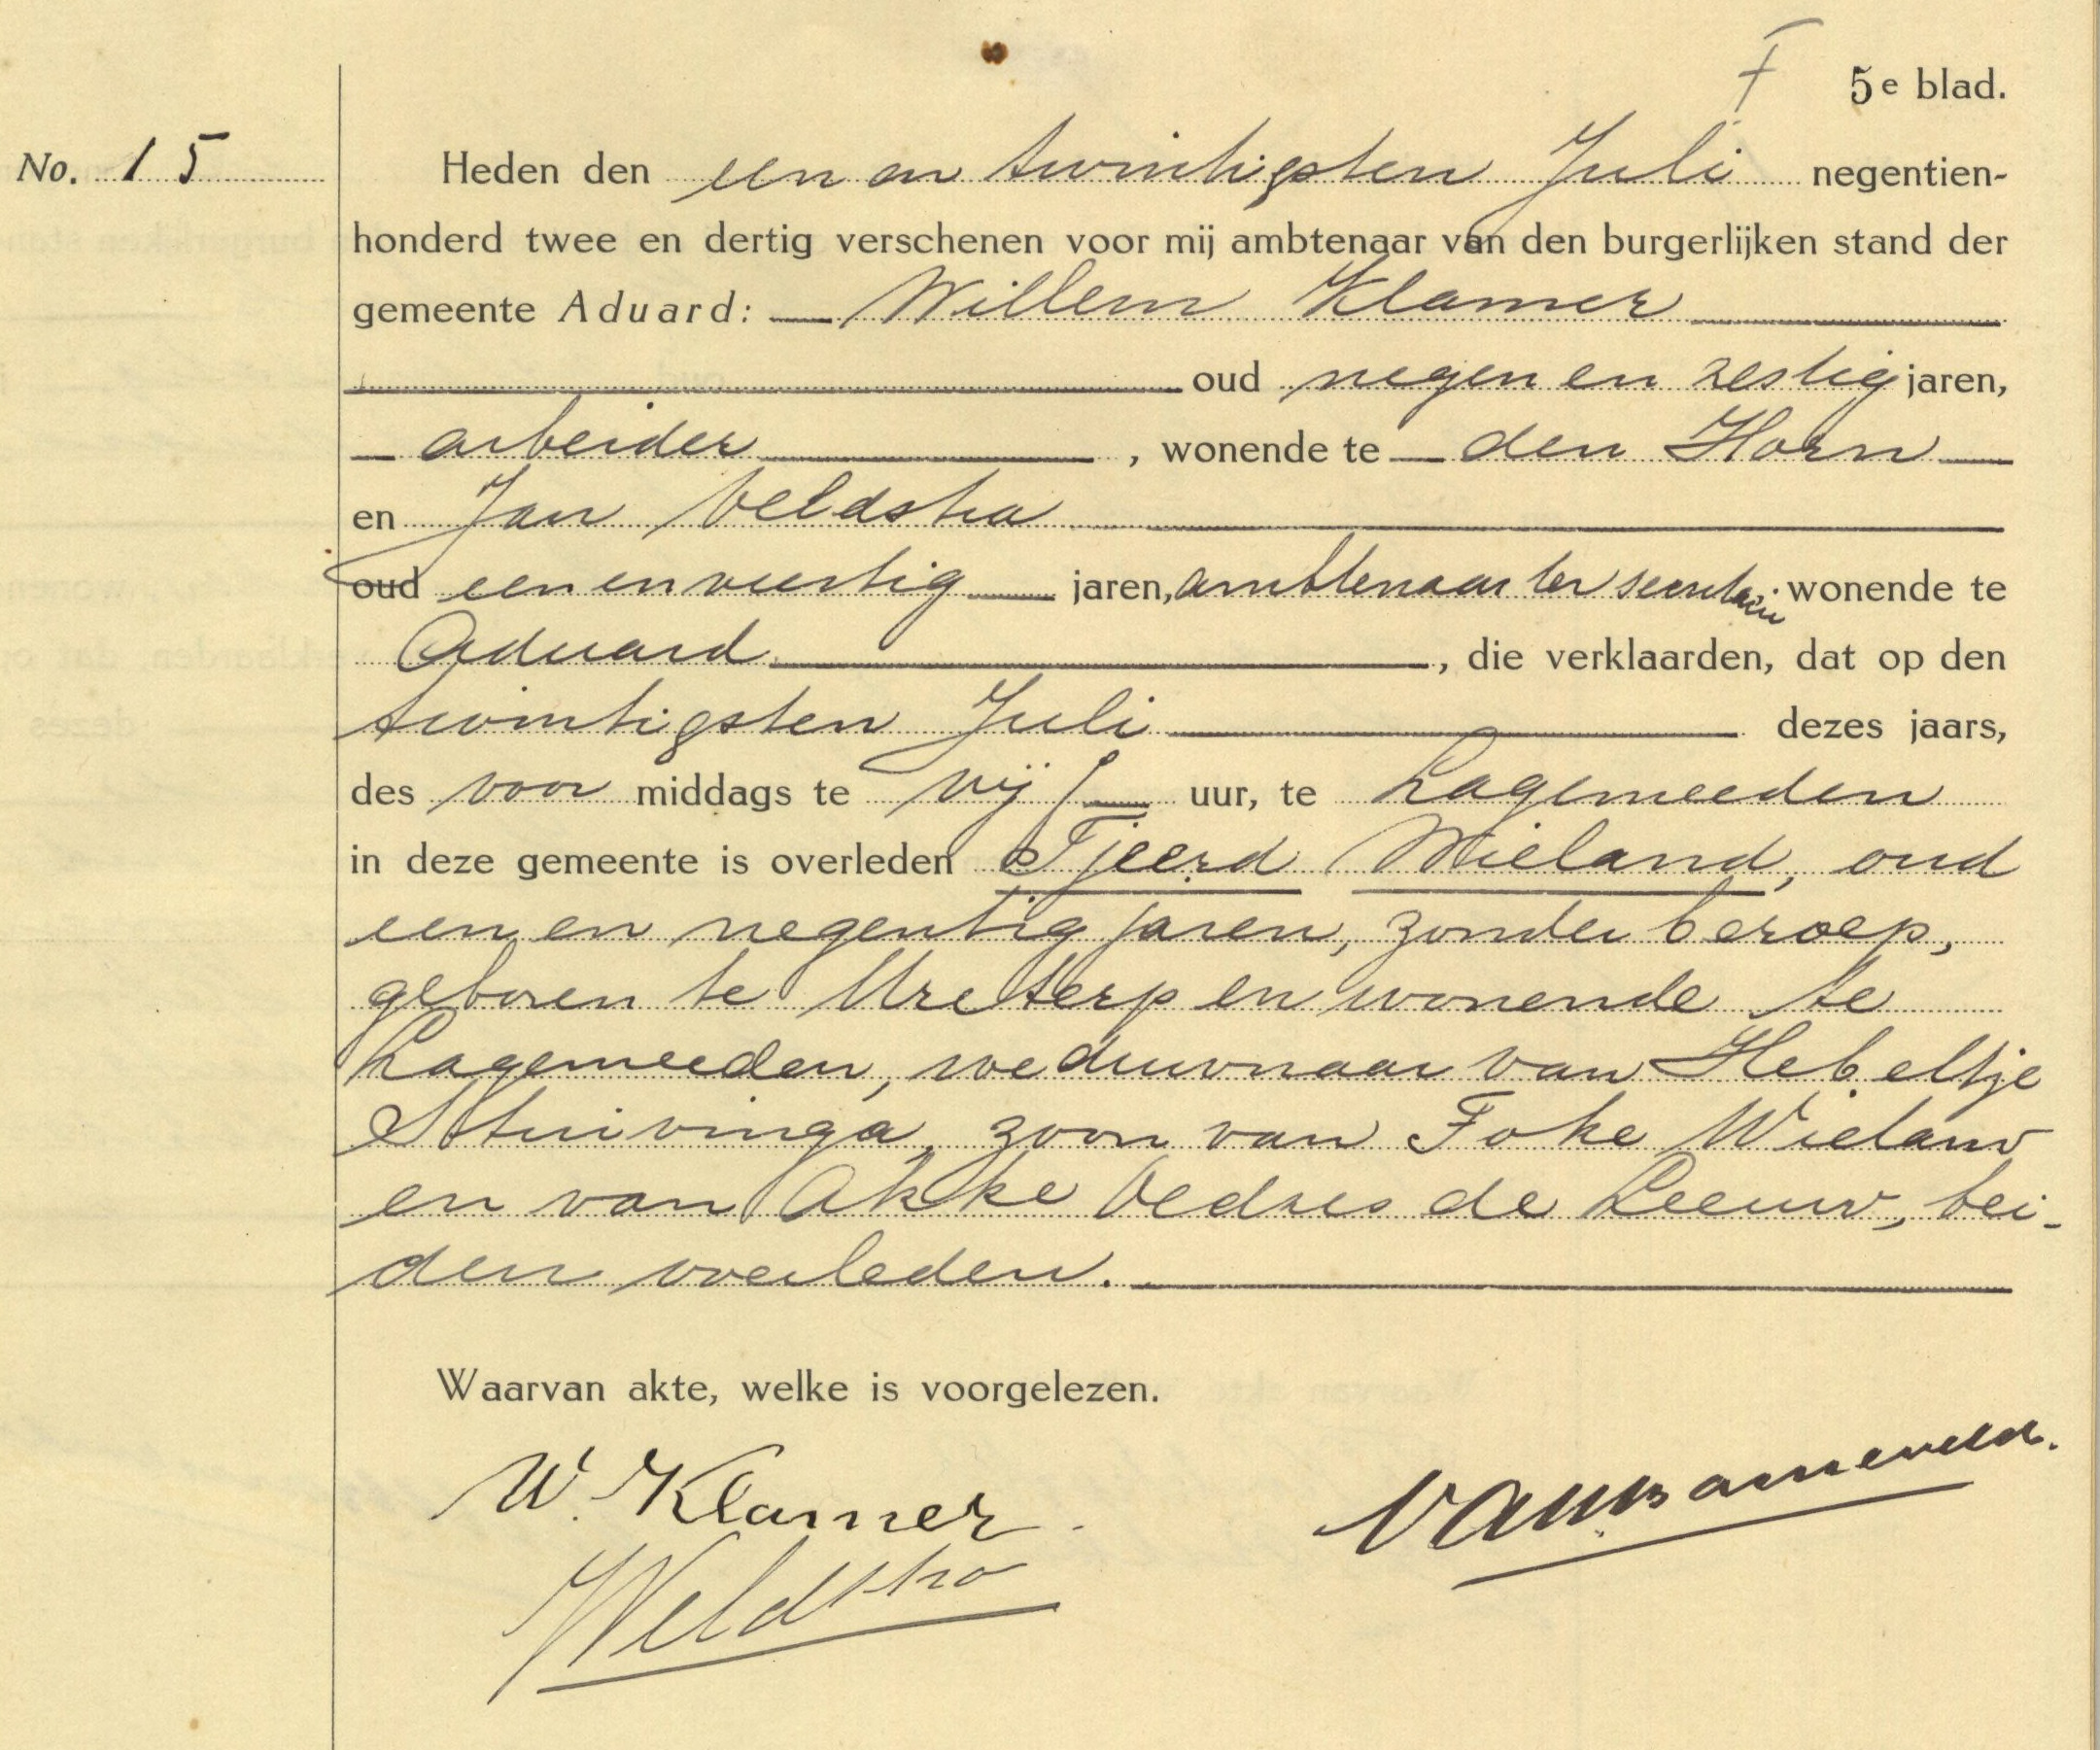 5e blad.
No. 15
Heden den een en twintigsten Juli negentien-
honderd twee en dertig verschenen voor mij ambtenaar van den burgerlijken stand der
gemeente Aduard: Willem Klamer
oud negen en zestig jaren,
arbeider, wonende te den Horn
en Jan Veldstra
oud een en veertig jaren, ambtenaar ter secretarie wonende te
Aduard, die verklaarden, dat op den
twintigsten Juli dezes jaars,
des voor middags te vijf uur, te Lagemeeden
in deze gemeente is overleden Tjeerd Wieland, oud
een en negentig jaren, zonder beroep,
geboren te Ureterp en wonende te
Lagemeeden, weduwnaar van Hebeltje
Stuivinga, zoon van Foke Wieland
en van Akke Oedzes de Leeuw, bei-
den overleden.
Waarvan akte, welke is voorgelezen.
W. Klamer
JVeldstra